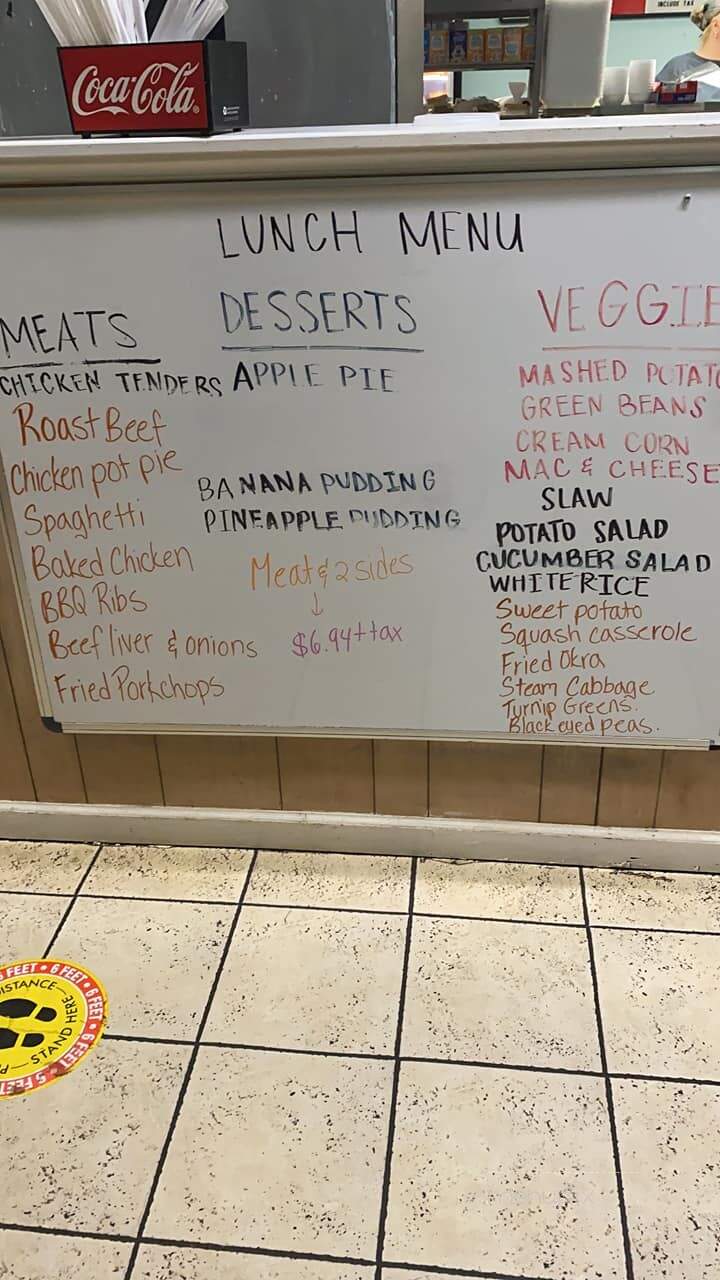 Coca-Cola
INCLUDE TAX
LUNCH MENU
MEATS
CHICKEN TENDERS
Roast Beef
Chicken pot pie
Spaghetti
Baked Chicken
BBQ Ribs
Beef liver & onions
Fried Porkchops
DESSERTS
APPLE PIE
BANANA PUDDING
PINEAPPLE PUDDING
Meat & 2 sides
↓
$6.94+tax
VEGGIE
MASHED POTATO
GREEN BEANS
CREAM CORN
MAC & CHEESE
SLAW
POTATO SALAD
CUCUMBER SALAD
WHITE RICE
Sweet potato
Squash casserole
Fried Okra
Steam Cabbage
Turnip Greens.
Black eyed peas.
6 FEET • 6 FEET • 6 FEET
DISTANCE
STAND HERE